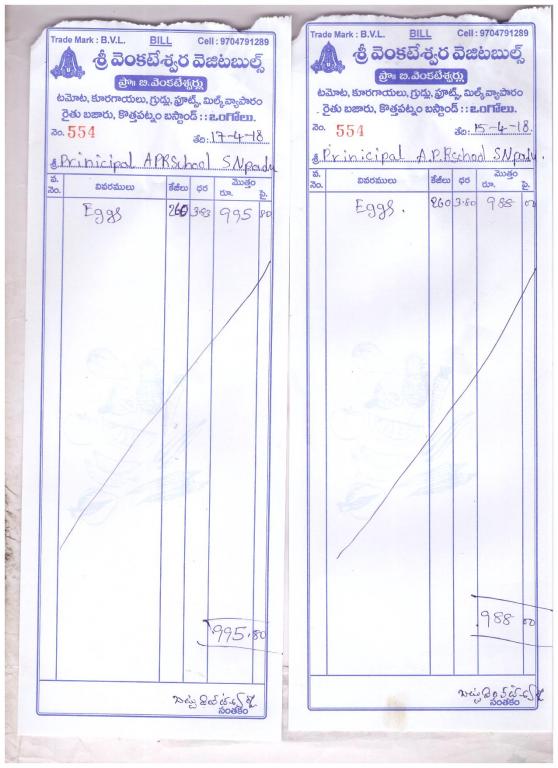 Trade Mark : B.V.L. BILL Cell : 9704791289
శ్రీ వెంకటేశ్వర వెజిటబుల్స్
ప్రొః బి.వెంకటేశ్వర్లు
టమోట, కూరగాయలు, గ్రుడ్లు, ఫ్రూట్స్, మిల్క్ వ్యాపారం
రైతు బజారు, కొత్తపట్నం బస్టాండ్ :: ఒంగోలు.
నెం. 554 తేది: 17-4-18
శ్రీ Prinicipal APRSchool SNpadu
వ.నెం. వివరములు కేజీలు ధర మొత్తం రూ. పై.
Eggs 260 3-83 995 80
995.80
సంతకం
Trade Mark : B.V.L. BILL Cell : 9704791289
శ్రీ వెంకటేశ్వర వెజిటబుల్స్
ప్రొః బి.వెంకటేశ్వర్లు
టమోట, కూరగాయలు, గ్రుడ్లు, ఫ్రూట్స్, మిల్క్ వ్యాపారం
రైతు బజారు, కొత్తపట్నం బస్టాండ్ :: ఒంగోలు.
నెం. 554 తేది: 15-4-18.
శ్రీ Prinicipal A.P.RSchool SNpadu.
వ.నెం. వివరములు కేజీలు ధర మొత్తం రూ. పై.
Eggs. 260 3-80 988 00
988 00
సంతకం